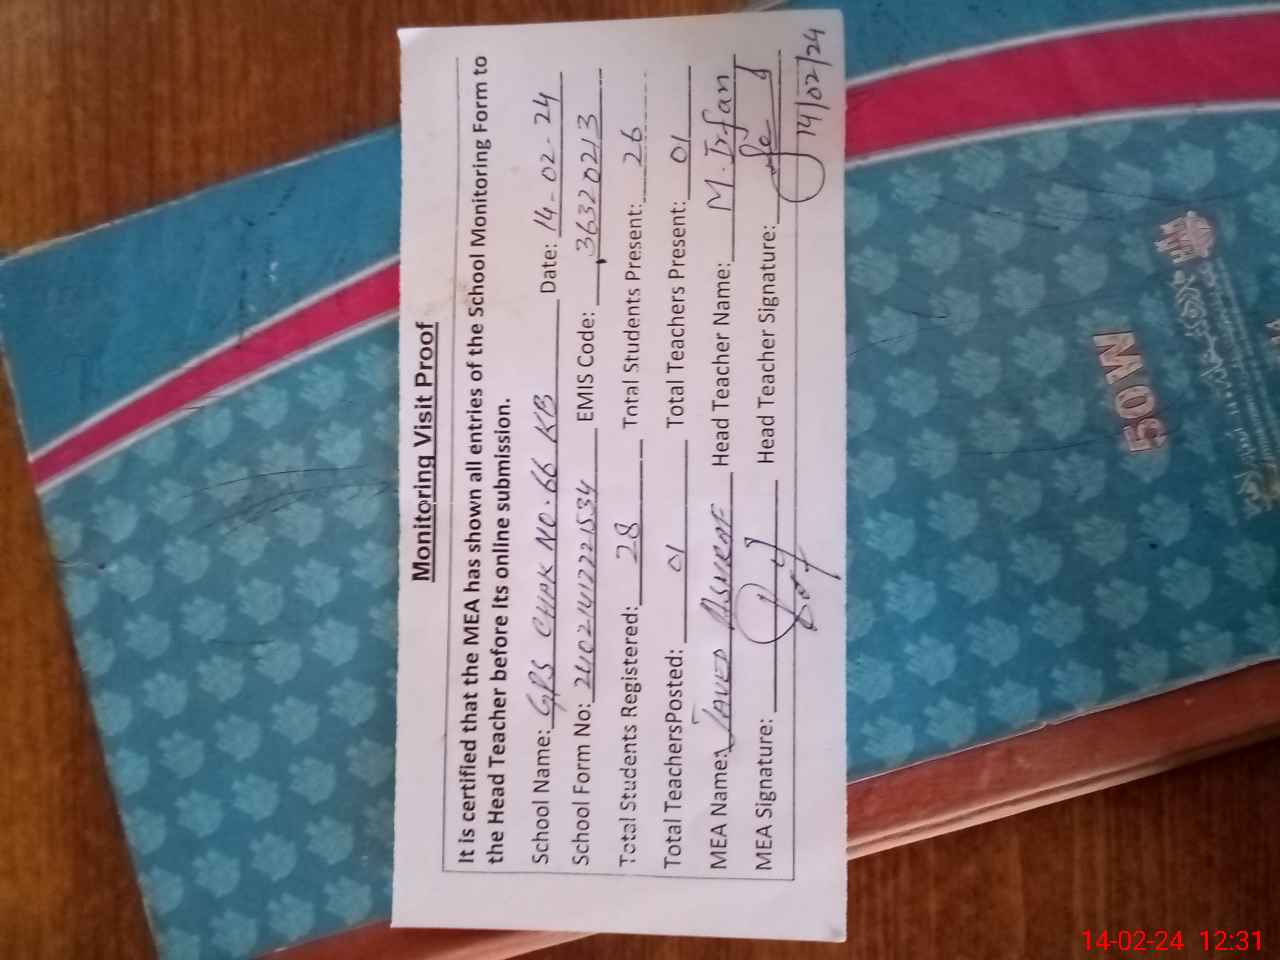 Monitoring Visit Proof
It is certified that the MEA has shown all entries of the School Monitoring Form to
the Head Teacher before its online submission.
School Name: GPS CHAK NO. 66 KB Date: 14-02-24
School Form No: 24021412221534 EMIS Code: 36320213
Total Students Registered: 28 Total Students Present: 26
Total TeachersPosted: 01 Total Teachers Present: 01
MEA Name: JAVED ASHRAF Head Teacher Name: M. Irfan
MEA Signature: Head Teacher Signature:
14/02/24
50W
14-02-24 12:31